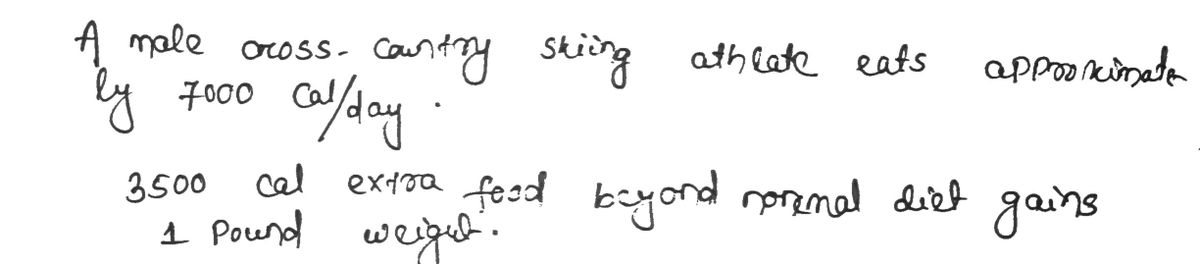 A male cross-country skiing athlate eats approximate
ly 7000 Cal/day.
3500 cal extra food beyond normal diet gains
1 Pound weight.